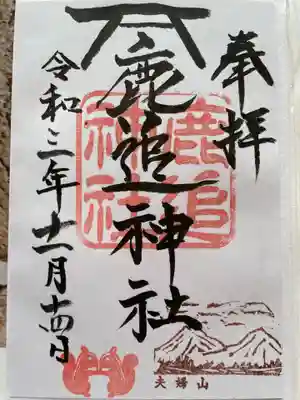 奉拝
鹿追神社
鹿追神社
令和三年十一月十四日
夫婦山